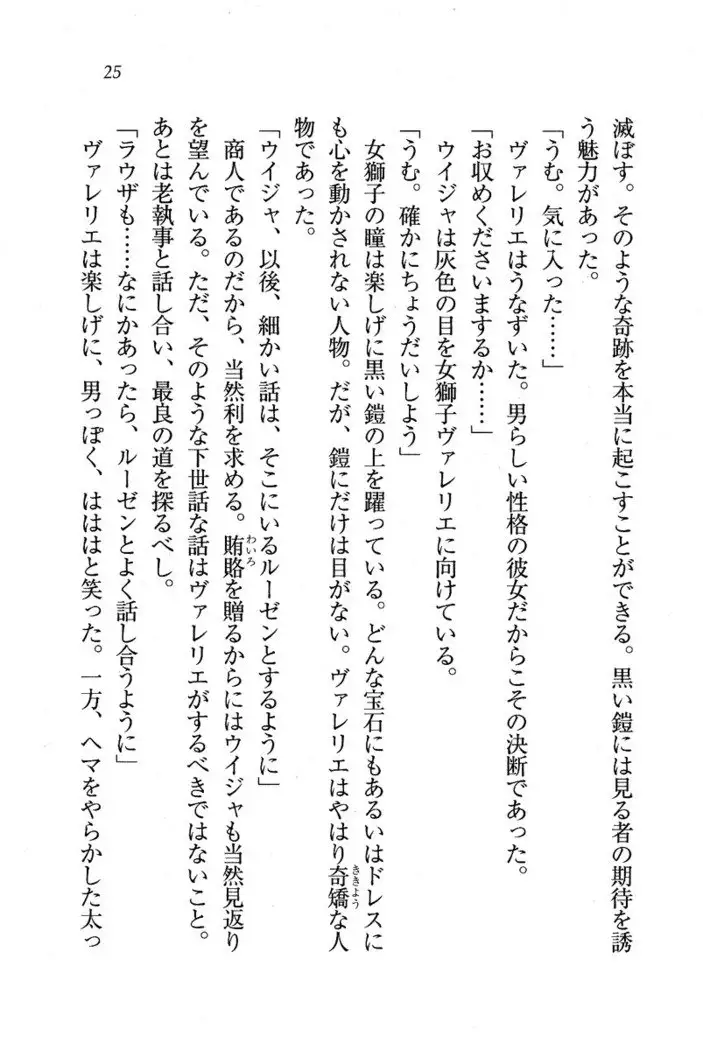 25
滅ぼす。そのような奇跡を本当に起こすことができる。黒い鎧には見る者の期待を誘
う魅力があった。
「うむ。気に入った……」
ヴァレリエはうなずいた。男らしい性格の彼女だからこその決断であった。
「お収めくださいまするか……」
ウイジャは灰色の目を女獅子ヴァレリエに向けている。
「うむ。確かにちょうだいしよう」
女獅子の瞳は楽しげに黒い鎧の上を躍っている。どんな宝石にもあるいはドレスに
も心を動かされない人物。だが、鎧にだけは目がない。ヴァレリエはやはり奇矯な人
ききよう
物であった。
「ウイジャ、以後、細かい話は、そこにいるルーゼンとするように」
商人であるのだから、当然利を求める。賄賂を贈るからにはウイジャも当然見返り
わいろ
を望んでいる。ただ、そのような下世話な話はヴァレリエがするべきではないこと。
あとは老執事と話し合い、最良の道を探るべし。
「ラウザも……なにかあったら、ルーゼンとよく話し合うように」
ヴァレリエは楽しげに、男っぽく、はははと笑った。一方、ヘマをやらかした太っ